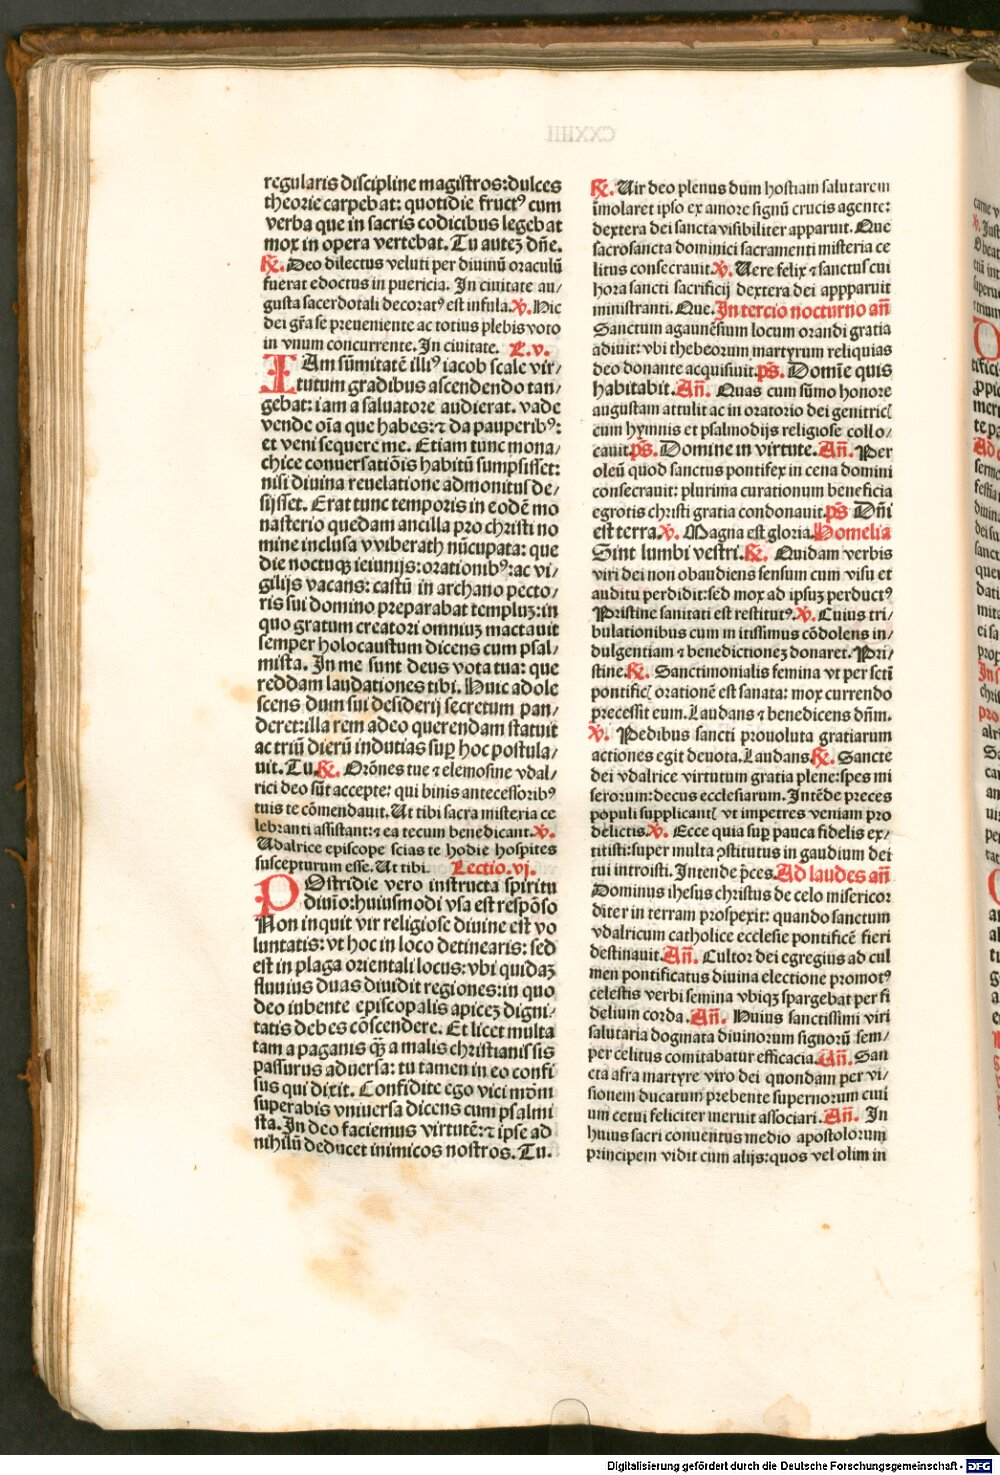 regularis discipline magistros:dulces
theorie carpebat: quotidie fructꝰ cum
verba que in sacris codicibus legebat
mox in opera vertebat. Tu autez dn̄e.
℟. Deo dilectus veluti per diuinū oraculū
fuerat edoctus in puericia. In ciuitate au/
gusta sacerdotali decoratꝰ est infula. ℣. Hic
dei gr̄a se preueniente ac totius plebis voto
in vnum concurrente. In ciuitate. L.v.
IAm sūmitatē illiꝰ iacob scale vir/
tutum gradibus ascendendo tan/
gebat: iam a saluatore audierat. vade
vende oīa que habes: ⁊ da pauperibꝰ:
et veni sequere me. Etiam tunc mona/
chice conuersatiōis habitū sumpsisset:
nisi diuina reuelatione admonitus de/
sijsset. Erat tunc temporis in eodē mo
nasterio quedam ancilla pro christi no
mine inclusa vviberath nūcupata: que
die noctuqꝫ ieiunijs: orationibꝰ: ac vi/
gilijs vacans: castū in archano pecto/
ris sui domino preparabat templuz: in
quo gratum creatori omniuz mactauit
semper holocaustum dicens cum psal/
mista. In me sunt deus vota tua: que
reddam laudationes tibi. Huic adole
scens dum sui desiderij secretum pan/
deret: illa rem adeo querendam statuit
ac triū dierū indutias suꝑ hoc postula/
uit. Tu. ℟. Orōnes tue ⁊ elemosine vdal/
rici deo sūt accepte: qui binis antecessoribꝰ
tuis te cōmendauit. Ut tibi sacra misteria ce
lebranti assistant: ⁊ ea tecum benedicant. ℣.
Udalrice episcope scias te hodie hospites
suscepturum esse. Ut tibi. Lectio.vj.
POstridie vero instructa spiritu
diuīo: huiusmodi vsa est respōso
Non inquit vir religiose diuine est vo
luntatis: vt hoc in loco detinearis: sed
est in plaga orientali locus: vbi quidaz
fluuius duas diuidit regiones: in quo
deo iubente episcopalis apicez digni/
tatis debes cōscendere. Et licet multa
tam a paganis qꝫ̄ a malis christianissis
passurus aduersa: tu tamen in eo confi
sus qui dixit. Confidite ego vici mūm
superabis vniuersa dicens cum psalmi
sta. In deo faciemus virtutē: ⁊ ipse ad
nihilū deducet inimicos nostros. Tu.
℟. Uir deo plenus dum hostiam salutarem
īmolaret ipso ex amore signū crucis agente:
dextera dei sancta visibiliter apparuit. Que
sacrosancta dominici sacramenti misteria ce
litus consecrauit. ℣. Uere felix ⁊ sanctus cui
hora sancti sacrificij dextera dei appparuit
ministranti. Que. In tercio nocturno an̄
Sanctum agaunēsium locum orandi gratia
adiuit: vbi thebeorum martyrum reliquias
deo donante acquisiuit. ps̄. Domīe quis
habitabit. An̄. Quas cum sūmo honore
augustam attulit ac in oratorio dei genitricꝭ
cum hymnis et psalmodijs religiose collo/
cauit. ps̄. Domine in virtute. An̄. Per
oleū quod sanctus pontifex in cena domini
consecrauit: plurima curationum beneficia
egrotis christi gratia condonauit. ps̄ Dn̄i
est terra. ℣. Magna est gloria. Homelia
Sint lumbi vestri. ℟. Quidam verbis
viri dei non obaudiens sensum cum visu et
auditu perdidit: sed mox ad ipsuz perductꝰ
Pristine sanitati est restitutꝰ. ℣. Cuius tri/
bulationibus cum mitissimus cōdolens in/
dulgentiam ⁊ benedictionez donaret. Pri/
stine. ℟. Sanctimonialis femina vt per scti
pontificꝭ orationē est sanata: mox currendo
precessit eum. Laudans ⁊ benedicens dn̄m.
℣. Pedibus sancti prouoluta gratiarum
actiones egit deuota. Laudans. ℟. Sancte
dei vdalrice virtutum gratia plene: spes mi
serorum: decus ecclesiarum. Intēde preces
populi supplicantꝭ vt impetres veniam pro
delictis. ℣. Ecce quia suꝑ pauca fidelis ex/
titisti: super multa ꝯstitutus in gaudium dei
tui introisti. Intende p̄ces. Ad laudes an̄
Dominus ihesus christus de celo misericor
diter in terram prospexit: quando sanctum
vdalricum catholice ecclesie pontificē fieri
destinauit. An̄. Cultor dei egregius ad cul
men pontificatus diuina electione promotꝰ
celestis verbi semina vbiqꝫ spargebat per fi
delium corda. An̄. Huius sanctissimi viri
salutaria dogmata diuinorum signorū sem/
per celitus comitabatur efficacia. An̄. San
cta afra martyre viro dei quondam per vi/
sionem ducatum prebente supernorum ciui
um cetui feliciter meruit associari. An̄. In
huius sacri conuentus medio apostolorum
principem vidit cum alijs: quos vel olim in
Digitalisierung gefördert durch die Deutsche Forschungsgemeinschaft - DFG